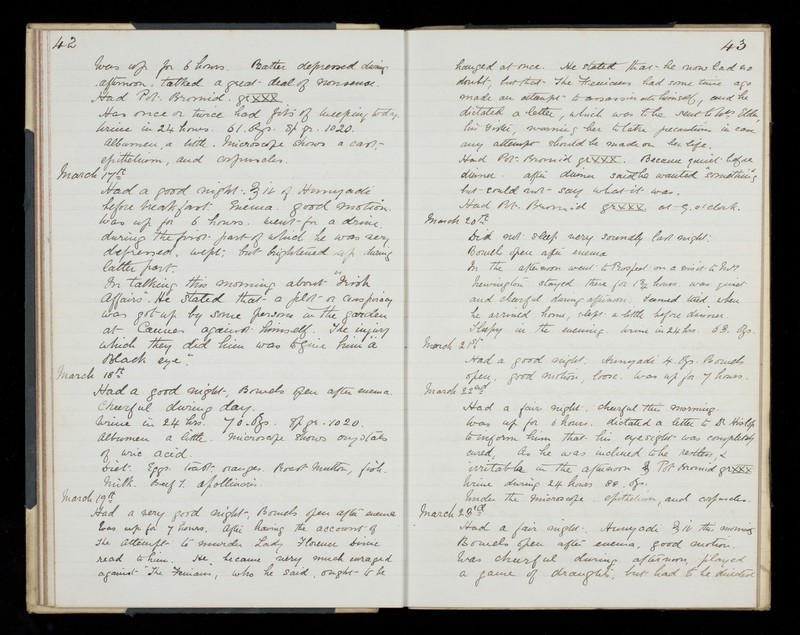 42
Was up for 6 hours. Rather depressed during
afternoon. talked a great deal of nonsense.
Had Pot. Bromid. gr XXX
Has once or twice had fits of weeping today.
Urine in 24 hours. 61. Ozs. Sp gr. 1020.
Albumen, a little. Microscope shows a cast,
epithelium, and corpuscles.
March 17th
Had a good night. ℥iv of Hunyadi
before breakfast. Enema. good motion.
Was up for 6 hours. went for a drive,
during the first part of which he was very
depressed, wept; but brightened up during
latter part.
In talking this morning about "Irish
Affairs". He stated that a plot or conspiracy
was got up by some persons in the garden
at Cannes against himself. The injury
which they did him was to give him "a
Black eye".
March 18th
Had a good night. Bowels open after enema.
Cheerful during day.
Urine in 24 hrs. 70. Ozs. Sp gr. 1020.
Albumen a little. Microscope shows crystals
of uric acid.
Diet. Eggs. Toast. oranges. Roast Mutton, fish.
Milk. Beef T. apollinaris.
March 19th
Had a very good night. Bowels open after enema
Was up for 7 hours. After having the account of
the attempt to murder Lady Florence Dixie
read to him. He became very much enraged
against "The Fenians, who he said, ought to be
43
hanged at once. He stated that he now had no
doubt, but that the Fenians had some time ago
made an attempt to assassinate himself, and he
dictated a letter, which was to be sent to
his Sister, warning her to take precautions in case
any attempt should be made on her life.
Had Pot. Bromid gr XXX. Became quiet before
dinner. after dinner said he wanted "something"
but could not say what it was.
Had Pot. Bromid gr XXX at 9. o'clock.
March 20th
Did not sleep very soundly last night.
Bowels open after enema
In the afternoon went to Prospect on a visit to
Newington stayed there for 1½ hours. was quiet
and cheerful during afternoon. Seemed tired when
he arrived home, slept a little before dinner.
Sleepy in the evening. Urine in 24 hrs. 63. Ozs.
March 21st
Had a good night. Hunyadi 4. Ozs. Bowels
open, good motion, loose. Was up for 7 hours.
March 22nd
Had a fair night. cheerful this morning.
Was up for 6 hours. dictated a letter to Dr Hislop
to inform him that his eyesight was completely
cured. As he was inclined to be restless, &
irritable in the afternoon Pot Bromid gr XXX
Urine during 24 hours 80. Ozs.
Under the microscope. epithelium, and corpuscles.
March 23rd
Had a fair night. Hunyadi ℥iv this morning
Bowels open after enema, good motion.
Was cheerful during afternoon, played
a game of draughts, but had to be directed